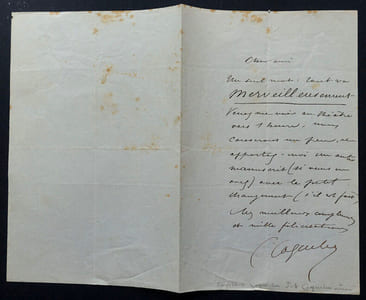 Cher ami
Un seul mot : tout va
Merveilleusement
Venez me voir au théâtre
vers 1 heure. nous
causerons un peu, et
apportez-moi un autre
manuscrit (si vous en
avez) avec le petit
changement (s'il est fait)
Mes meilleurs compliments
et mille félicitations
C Coquelin
Coquelin